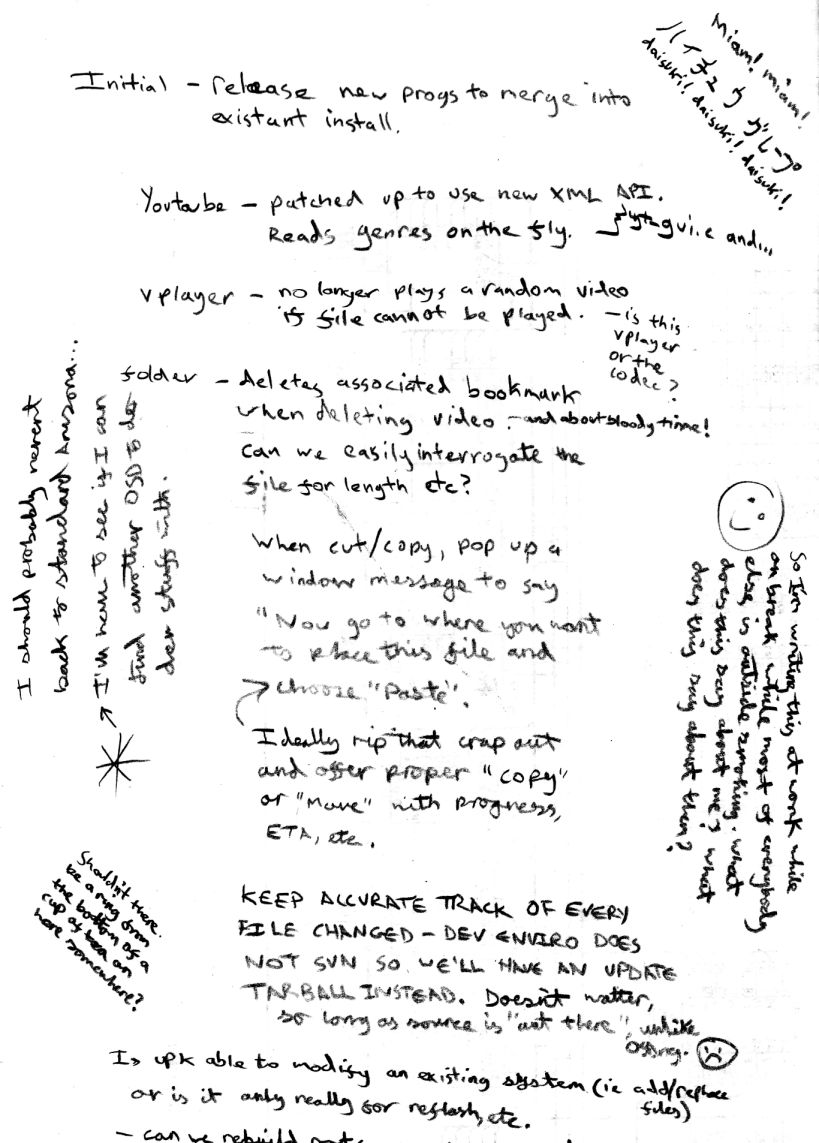 Miam! miam!
daisuki! daisuki! daisuki!
Initial - release new progs to merge into
existant install.
Youtube - patched up to use new XML API.
Reads genres on the fly.
and...
vplayer - no longer plays a random video
if file cannot be played.
- is this
vplayer
or the
codec?
folder - deletes associated bookmark
when deleting video. - and about bloody time!
can we easily interrogate the
file for length etc?
When cut/copy, pop up a
window message to say
"Now go to where you want
to place this file and
choose "Paste".
Ideally rip that crap out
and offer proper "copy"
or "Move" with progress,
ETA, etc.
I should probably revert
back to standard Arizona...
I'll have to see if I can
find another OSD to
over stuff with.
So I'm writing this at work while
on break while most of everybody
else is outside smoking. What
does this say about me? What
does this say about them?
Shouldn't there
be a ring from
the bottom of a
cup of tea on
here somewhere?
KEEP ACCURATE TRACK OF EVERY
FILE CHANGED - DEV ENVIRO DOES
NOT SVN SO WE'LL HAVE AN UPDATE
TARBALL INSTEAD. Doesn't matter,
so long as source is "out there", unlike
Is upk able to modify an existing system (ie add/replace
files)
or is it only really for reflash, etc.
- can we rebuild